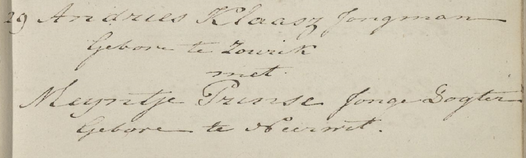 29 Andries Klaasz Jongman
Gebore te Zowik
met.
Meyntje Prinse Jonge Dogter
Gebore te Neurmt.